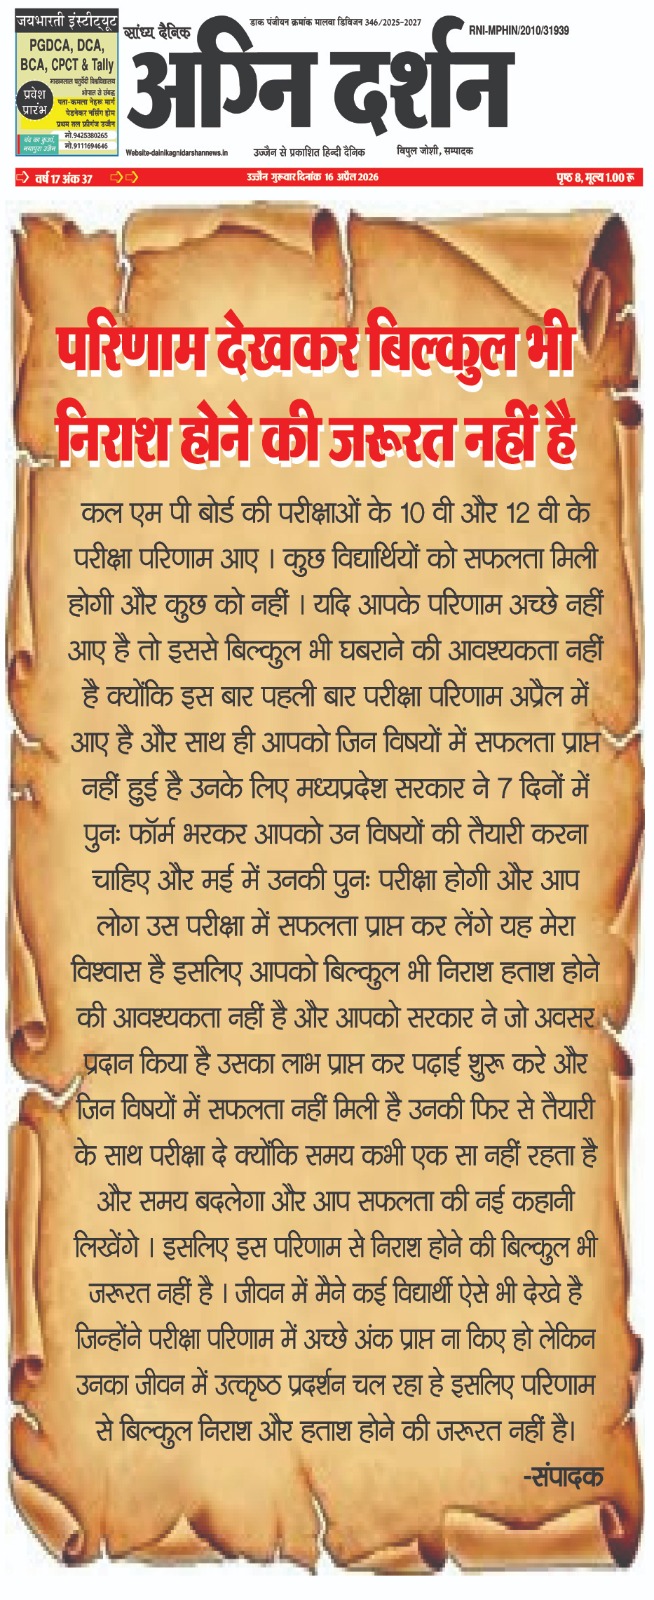 जयभारती इंस्टीट्यूट
PGDCA, DCA,
BCA, CPCT & Tally
माखनलाल चतुर्वेदी विश्वविद्यालय
भोपाल से संबद्ध
प्रवेश
प्रारंभ
पता-कमला नेहरू मार्ग
पेडनेकर नर्सिंग होम
प्रथम तल फ्रीगंज उज्जैन
मो.9425380265
मो.9111694646
सांध्य दैनिक
डाक पंजीयन क्रमांक मालवा डिविजन 346/2025-2027
RNI-MPHIN/2010/31939
अग्नि दर्शन
Website-dainikagnidarshannews.in
उज्जैन से प्रकाशित हिन्दी दैनिक
विपुल जोशी, सम्पादक
वर्ष 17 अंक 37
उज्जैन गुरूवार दिनांक 16 अप्रैल 2026
पृष्ठ 8, मूल्य 1.00 रू
परिणाम देखकर बिल्कुल भी
निराश होने की जरूरत नहीं है
कल एम पी बोर्ड की परीक्षाओं के 10 वी और 12 वी के
परीक्षा परिणाम आए । कुछ विद्यार्थियों को सफलता मिली
होगी और कुछ को नहीं । यदि आपके परिणाम अच्छे नहीं
आए है तो इससे बिल्कुल भी घबराने की आवश्यकता नहीं
है क्योंकि इस बार पहली बार परीक्षा परिणाम अप्रैल में
आए है और साथ ही आपको जिन विषयों में सफलता प्राप्त
नहीं हुई है उनके लिए मध्यप्रदेश सरकार ने 7 दिनों में
पुनः फॉर्म भरकर आपको उन विषयों की तैयारी करना
चाहिए और मई में उनकी पुनः परीक्षा होगी और आप
लोग उस परीक्षा में सफलता प्राप्त कर लेंगे यह मेरा
विश्वास है इसलिए आपको बिल्कुल भी निराश हताश होने
की आवश्यकता नहीं है और आपको सरकार ने जो अवसर
प्रदान किया है उसका लाभ प्राप्त कर पढ़ाई शुरू करे और
जिन विषयों में सफलता नहीं मिली है उनकी फिर से तैयारी
के साथ परीक्षा दे क्योंकि समय कभी एक सा नहीं रहता है
और समय बदलेगा और आप सफलता की नई कहानी
लिखेंगे । इसलिए इस परिणाम से निराश होने की बिल्कुल भी
जरूरत नहीं है । जीवन में मैने कई विद्यार्थी ऐसे भी देखे है
जिन्होंने परीक्षा परिणाम में अच्छे अंक प्राप्त ना किए हो लेकिन
उनका जीवन में उत्कृष्ठ प्रदर्शन चल रहा हे इसलिए परिणाम
से बिल्कुल निराश और हताश होने की जरूरत नहीं है।
-संपादक